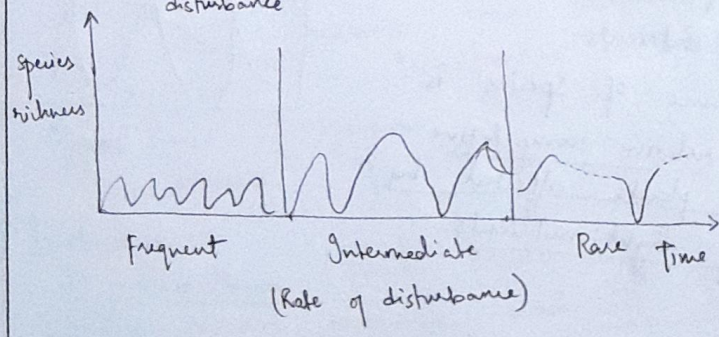 disturbance
Species
richness
Frequent
Intermediate
Rare
Time
(Rate of disturbance)